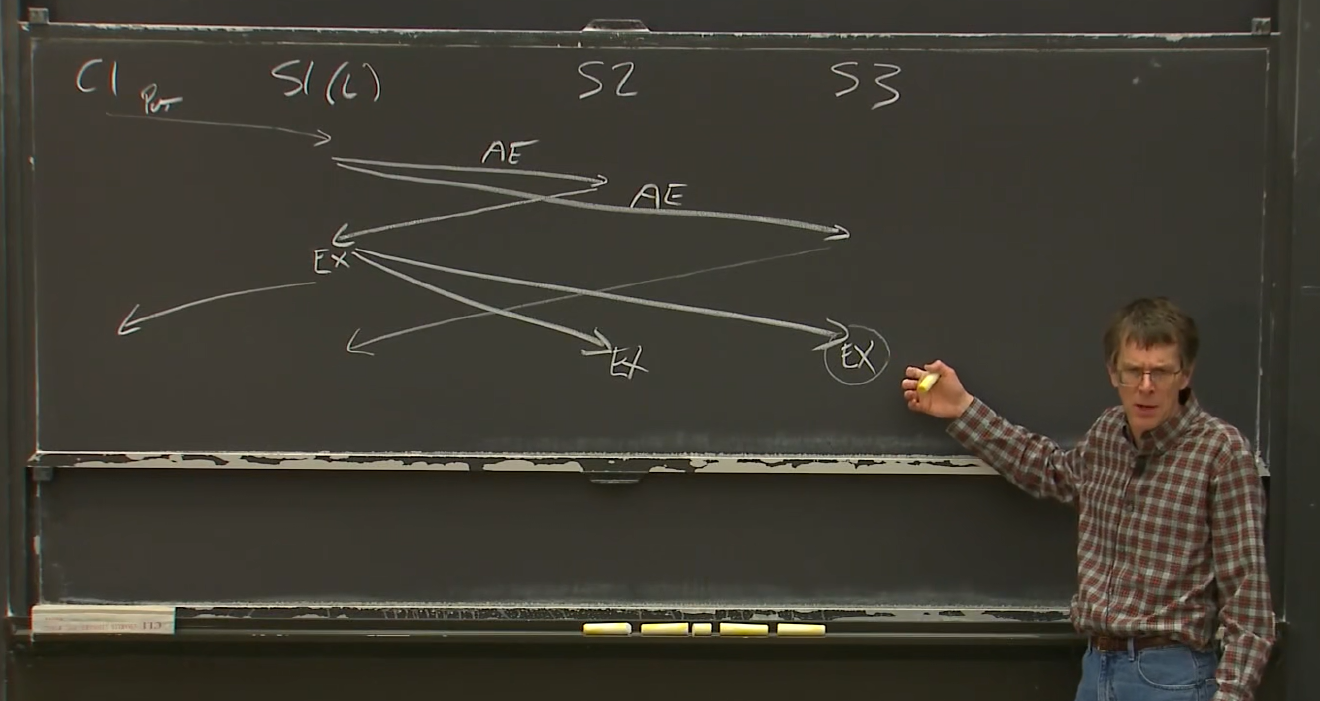 C1 S1(L) S2 S3
Put
AE
AE
EX
EX
EX